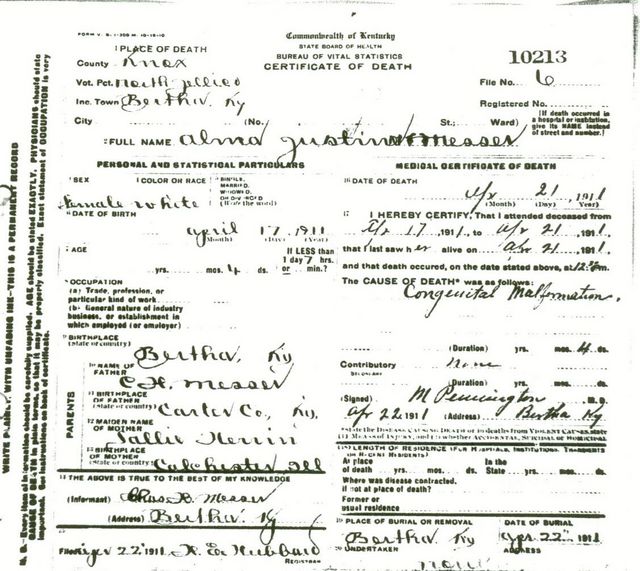 FORM V. S. 1-300 M-10-15-10
Commonwealth of Kentucky
STATE BOARD OF HEALTH
BUREAU OF VITAL STATISTICS
CERTIFICATE OF DEATH
10213
File No. 6
Registered No.
[If death occurred in a hospital or institution, give its NAME instead of street and number.]
1 PLACE OF DEATH
County Knox
Vot. Pct. north jellico
Inc. Town Bertha Ky
City (No. St.; Ward)
2 FULL NAME Alma Justin Messer
PERSONAL AND STATISTICAL PARTICULARS
3 SEX
female
4 COLOR OR RACE
white
5 SINGLE, MARRIED, WIDOWED, OR DIVORCED (Write the word)
6 DATE OF BIRTH
April 17 1911
(Month) (Day) (Year)
7 AGE
yrs. mos. 4 ds.
If LESS than 1 day 7 hrs. or min.?
8 OCCUPATION
(a) Trade, profession, or particular kind of work.
(b) General nature of industry business, or establishment in which employed (or employer)
9 BIRTHPLACE
(State or country) Bertha, Ky
10 NAME OF FATHER C. H. Messer
11 BIRTHPLACE OF FATHER
(State or country) Carter Co, Ky.
12 MAIDEN NAME OF MOTHER Sallie Herrin
13 BIRTHPLACE OF MOTHER
(State or country) Colchester Ill
PARENTS
14 THE ABOVE IS TRUE TO THE BEST OF MY KNOWLEDGE
(Informant) Messer
(Address) Bertha Ky
15
Filed Apr 22 1911 Hubbard
REGISTRAR
MEDICAL CERTIFICATE OF DEATH
16 DATE OF DEATH
Apr 21 1911
(Month) (Day) (Year)
17 I HEREBY CERTIFY, That I attended deceased from
Apr 17, 1911, to Apr 21, 1911,
that I last saw her alive on Apr 21, 1911,
and that death occured, on the date stated above, at 12 m.
The CAUSE OF DEATH* was as follows:
Congenital Malformation.
(Duration) yrs. mos. 4 ds.
Contributory none
SECONDARY
(Duration) yrs. mos. ds.
(Signed) M Pennington M. D.
Apr 22 1911 (Address) Bertha Ky
*State the DISEASE CAUSING DEATH or in deaths from VIOLENT CAUSES, state (1) MEANS OF INJURY, and (2) whether ACCIDENTAL, SUICIDAL or HOMICIDAL
18 LENGTH OF RESIDENCE (FOR HOSPITALS, INSTITUTIONS, TRANSIENTS OR RECENT RESIDENTS)
At place of death yrs. mos. ds. In the State yrs. mos. ds.
Where was disease contracted, if not at place of death?
Former or usual residence
19 PLACE OF BURIAL OR REMOVAL
Bertha Ky
DATE OF BURIAL
Apr 22 1911
20 UNDERTAKER
none
ADDRESS
WRITE PLAINLY WITH UNFADING INK—THIS IS A PERMANENT RECORD
N. B.—Every item of information should be carefully supplied. AGE should be stated EXACTLY. PHYSICIANS should state CAUSE OF DEATH in plain terms, so that it may be properly classified. Exact statement of OCCUPATION is very important. See instructions on back of certificate.